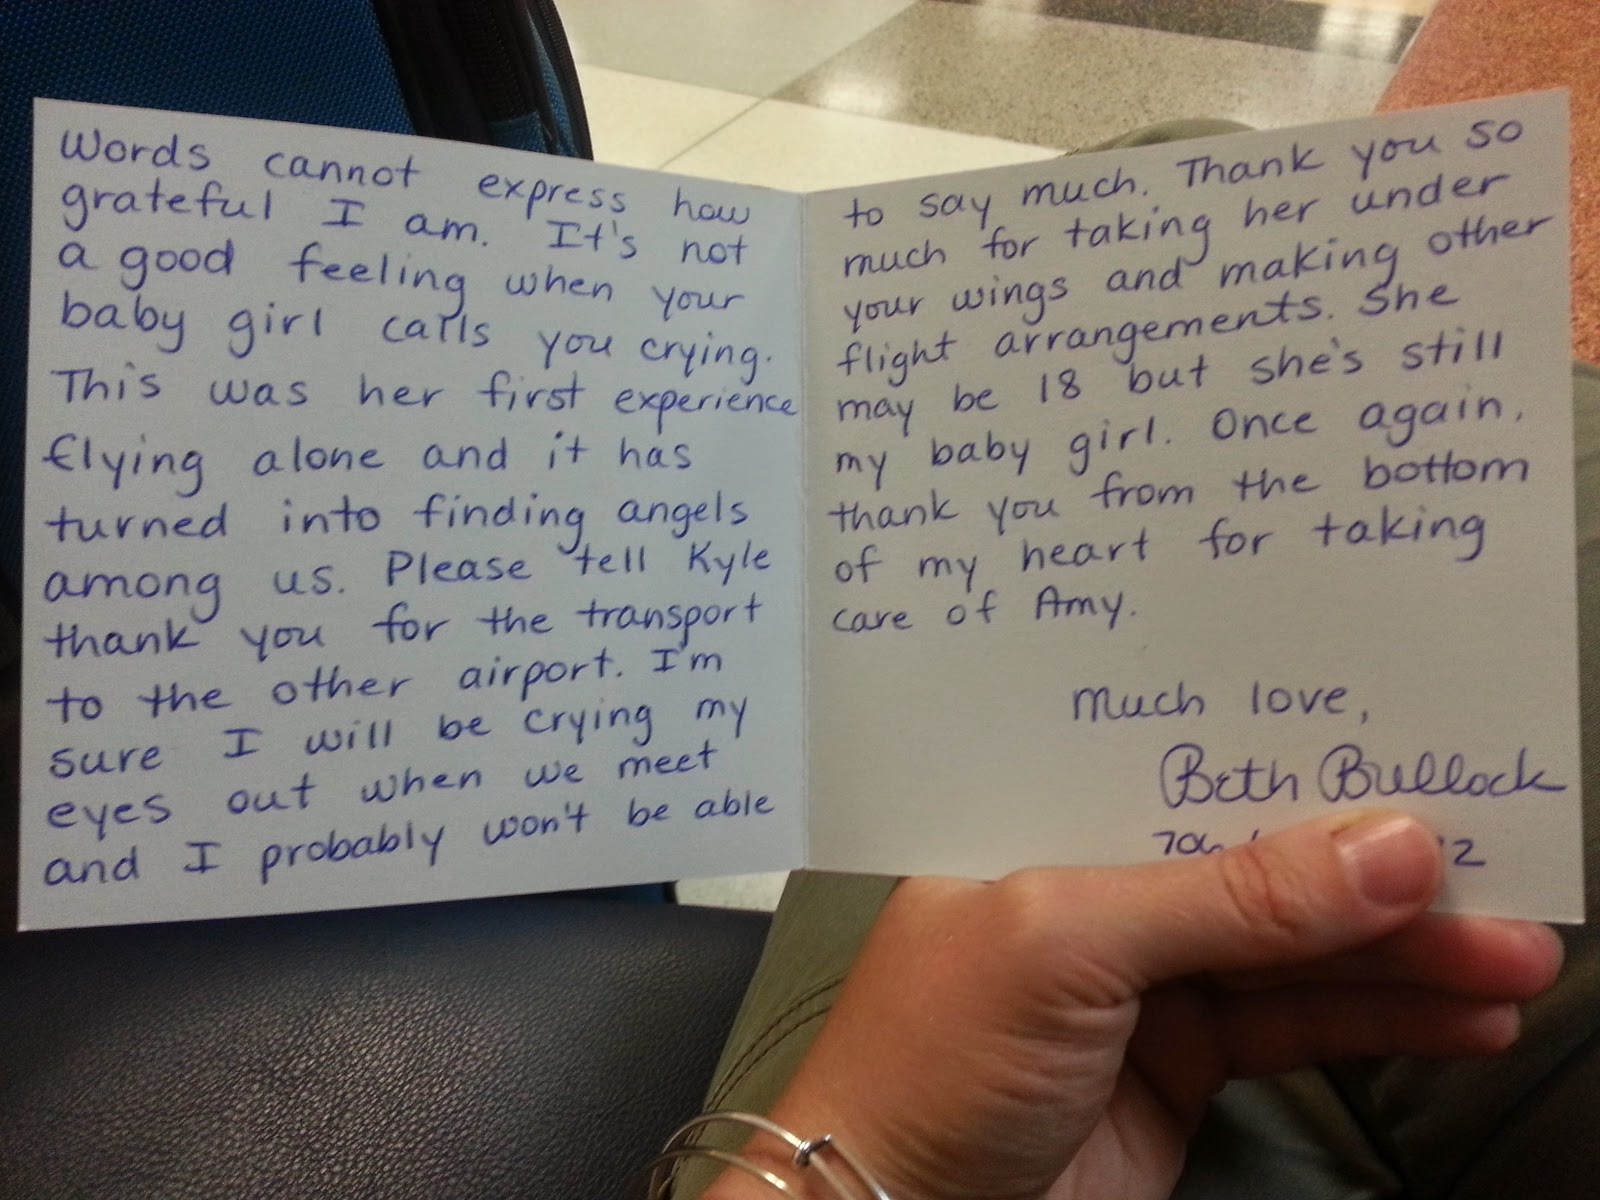 Words cannot express how
grateful I am. It's not
a good feeling when your
baby girl calls you crying.
This was her first experience
flying alone and it has
turned into finding angels
among us. Please tell Kyle
thank you for the transport
to the other airport. I'm
sure I will be crying my
eyes out when we meet
and I probably won't be able
to say much. Thank you so
much for taking her under
your wings and making other
flight arrangements. She
may be 18 but she's still
my baby girl. Once again,
thank you from the bottom
of my heart for taking
care of Amy.
Much love,
Beth Bullock